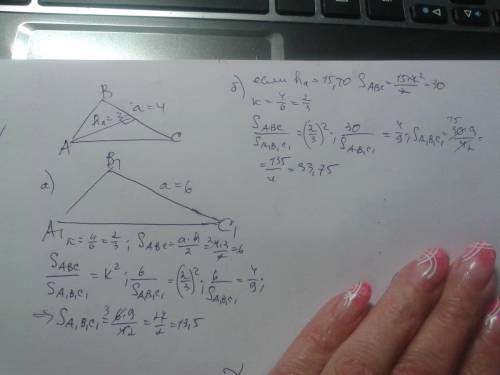 B
hₐ=3
a=4
A
C
а)
B₁
a=6
A₁
C₁
к=4/6=2/3; S_ABC=a·h/2=4·3/2=6
S_ABC/S_A₁B₁C₁=K²; 6/S_A₁B₁C₁=(2/3)²; 6/S_A₁B₁C₁=4/9;
⇒ S_A₁B₁C₁=6·9/4=27/2=13,5
б) если hₐ=15, то S_ABC=15·4/2=30
к=4/6=2/3
S_ABC/S_A₁B₁C₁=(2/3)²; 30/S_A₁B₁C₁=4/9; S_A₁B₁C₁=30·9/4=